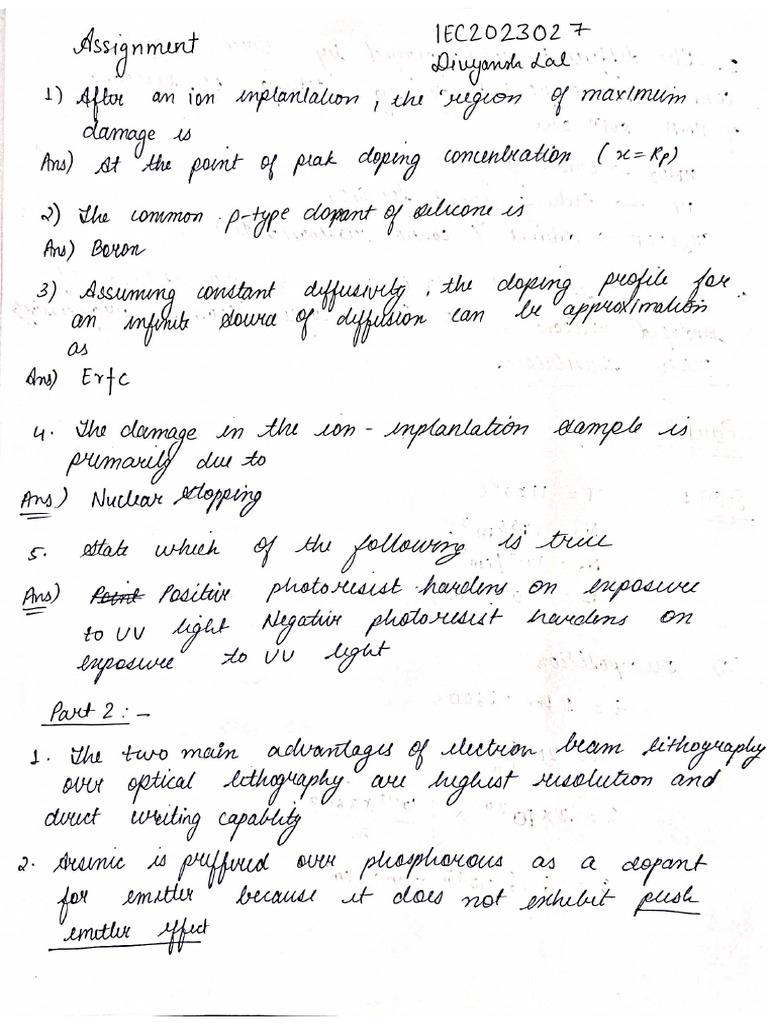 Assignment
IEC2023027
Divyansh Lal
1) After an ion inplantation, the region of maximum
damage is
Ans) At the point of peak doping concentration (x=Rp)
2) The common p-type dopant of silicone is
Ans) Boron
3) Assuming constant diffusivity, the doping profile for
an infinite source of diffusion can be approximation
as
Ans) Erfc
4. The damage in the ion-inplantation sample is
primarily due to
Ans) Nuclear stopping
5. State which of the following is true
Ans) Point Positive photoresist hardens on exposure
to UV light Negative photoresist hardens on
exposure to UV light
Part 2:-
1. The two main advantages of electron beam lithography
over optical lithography are highest resolution and
direct writing capablity
2. Arsenic is preffered over phosphorous as a dopant
for emitter because it does not exhibit push
emitter effect